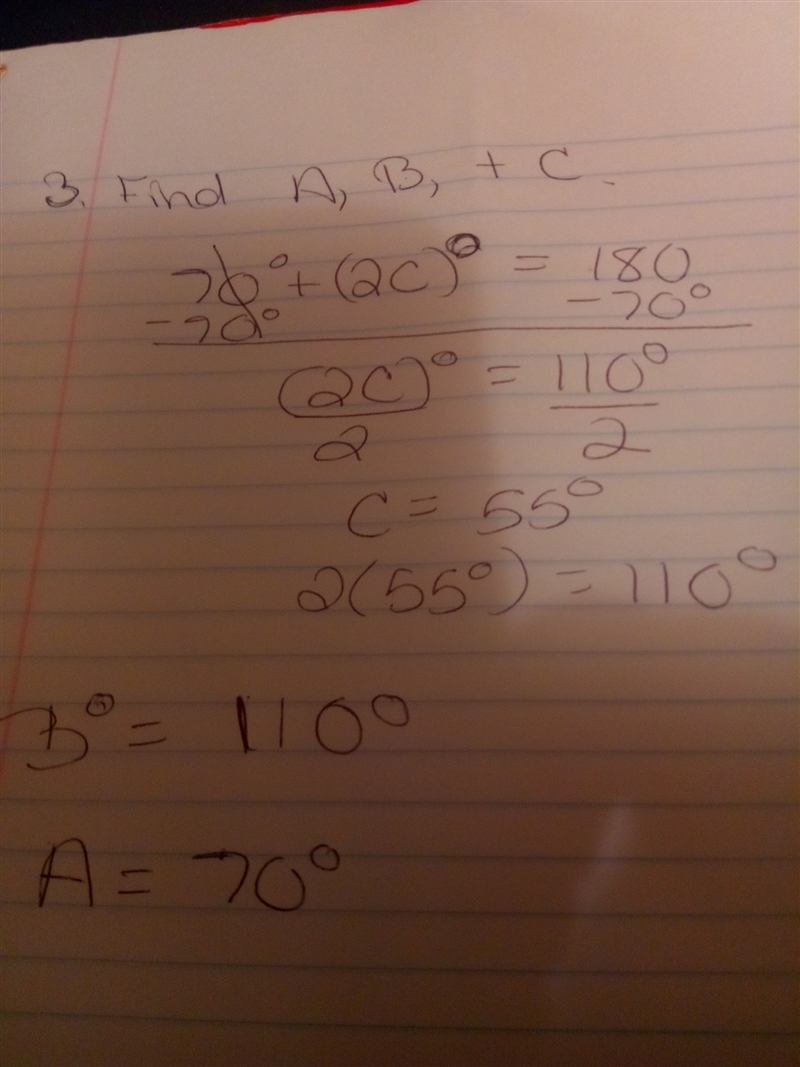 3. Find A, B, + C.
70° + (2C)° = 180
-70° -70°
(2C)° = 110°
2 2
C = 55°
2(55°) = 110°
B° = 110°
A = 70°